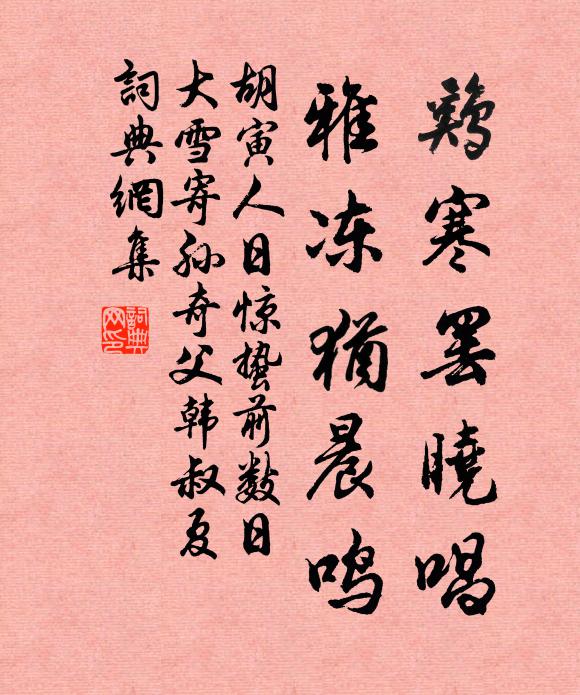 鷄寒罢曉唱
雅冻猶晨鸣
胡寅人日惊蛰前数日
大雪寄孙奇父韩叔夏
詞典網集
詞典网印